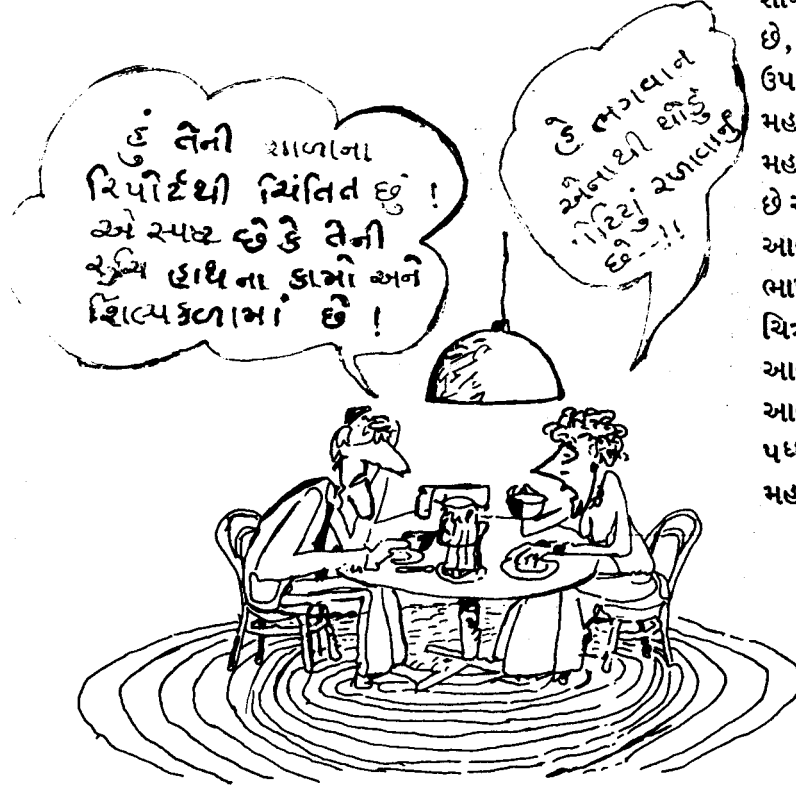 હું તેની શાળાના
રિપોર્ટથી ચિંતિત છું !
એ સ્પષ્ટ છે કે તેની
રુચિ હાથના કામો અને
શિલ્પકળામાં છે !
હે ભગવાન
એનાથી થોડું
રખાવાનું
છે--!!
છે,
ઉપ
મહ
મહ
છે
આ
ભા
ચિ
આ
આ
પધ
મહ